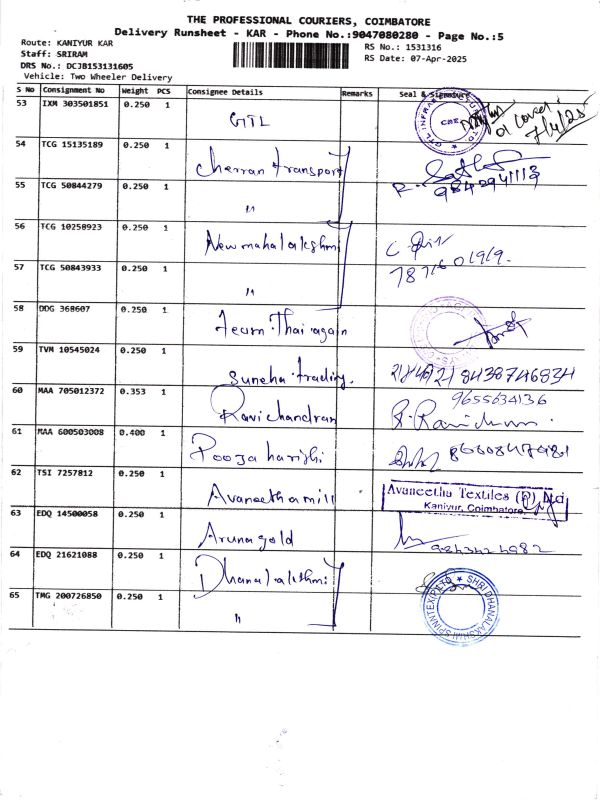 THE PROFESSIONAL COURIERS, COIMBATORE
Delivery Runsheet - KAR - Phone No.:9047080280 - Page No.:5
Route: KANIYUR KAR
Staff: SRIRAM
DRS No.: DCJB153131605
Vehicle: Two Wheeler Delivery
RS No.: 1531316
RS Date: 07-Apr-2025
S No Consignment No Weight PCS Consignee Details Remarks Seal & Signature
53 IXM 303501851 0.250 1 GTL 7/4/25
54 TCG 15135189 0.250 1 Cherran transport 9842941113
55 TCG 50844279 0.250 1 "
56 TCG 10258923 0.250 1 New mahalakshmi
57 TCG 50843933 0.250 1 "
58 DDG 368607 0.250 1 Thaiagain
59 TVM 10545024 0.250 1 Suneha trading. 8438746834
60 MAA 705012372 0.353 1 Ravichandran 9655634136
61 MAA 600503008 0.400 1 Pooja harishi
62 TSI 7257812 0.250 1 Avaneetha mill Avaneetha Textiles (P) Ltd
Kaniyur, Coimbatore.
63 EDQ 14500058 0.250 1 Aruna gold
64 EDQ 21621088 0.250 1 Dhanalakshmi
65 TMG 200726850 0.250 1 " SHRI DHANALAKSHMI SPINNTEX(P)LTD